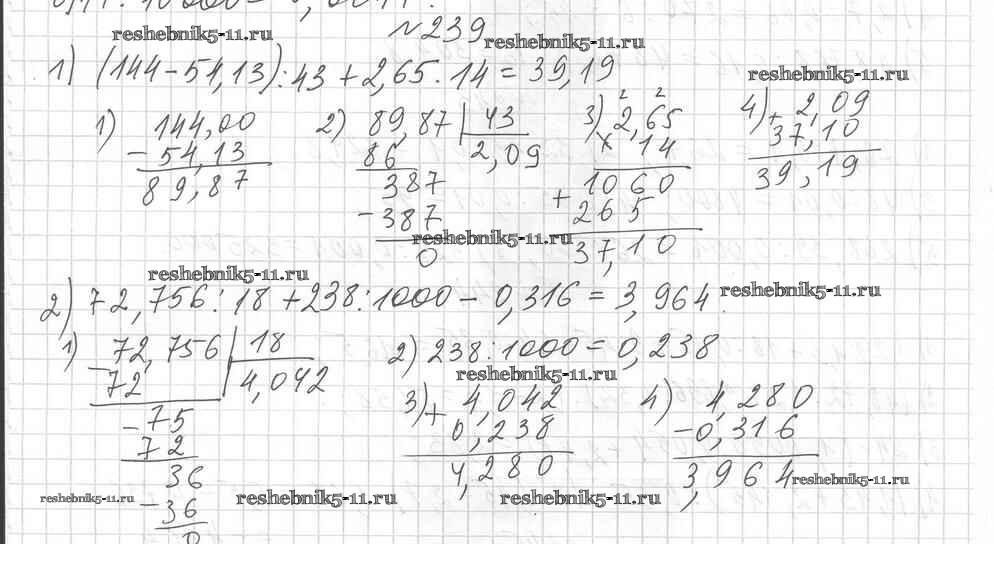 №239
1) (144-54,13):43+2,65·14=39,19
1) 144,00
- 54,13
89,87
2) 89,87 | 43
86 2,09
387
-387
0
3) 2 2
2,65
x 14
1060
+ 265
37,10
4) + 2,09
37,10
39,19
2) 72,756:18+238:1000-0,316=3,964
1) - 72,756 | 18
72 4,042
- 75
72
36
- 36
0
2) 238:1000=0,238
3) + 4,042
0,238
4,280
4) 4,280
- 0,316
3,964
reshebnik5-11.ru
reshebnik5-11.ru
reshebnik5-11.ru
reshebnik5-11.ru
reshebnik5-11.ru
reshebnik5-11.ru
reshebnik5-11.ru
reshebnik5-11.ru
reshebnik5-11.ru
reshebnik5-11.ru
reshebnik5-11.ru